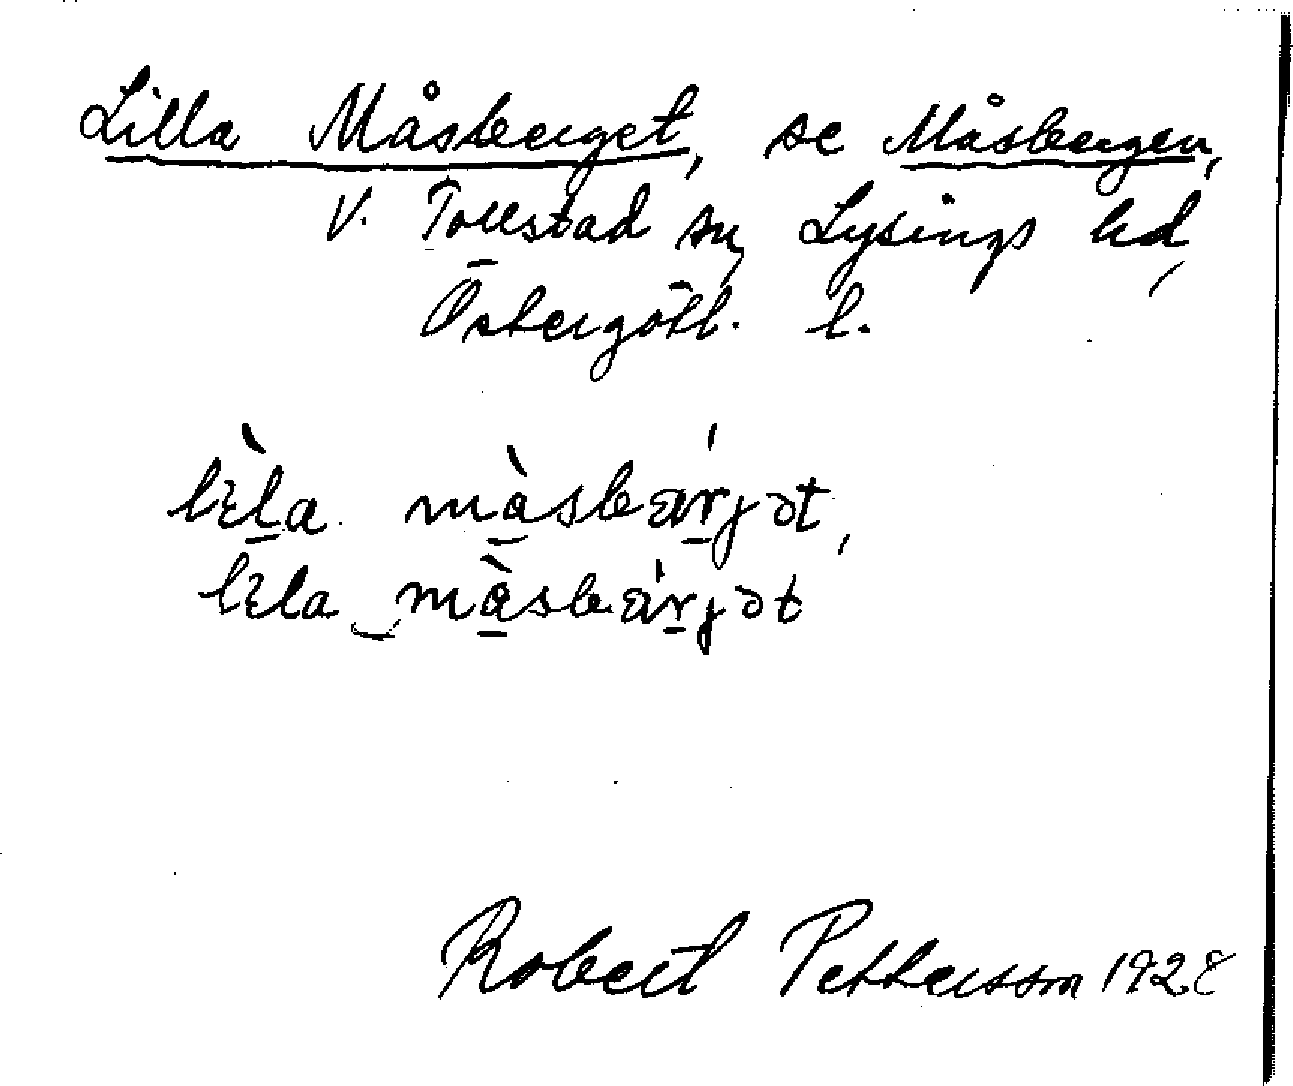 Lilla Måsberget, se Måsbergen,
V. Tollstad sn, Lysings hd,
Östergötl. l.
lìla màsbárjət,
lìla‿màsbárjət
Robert Pettersson 1928